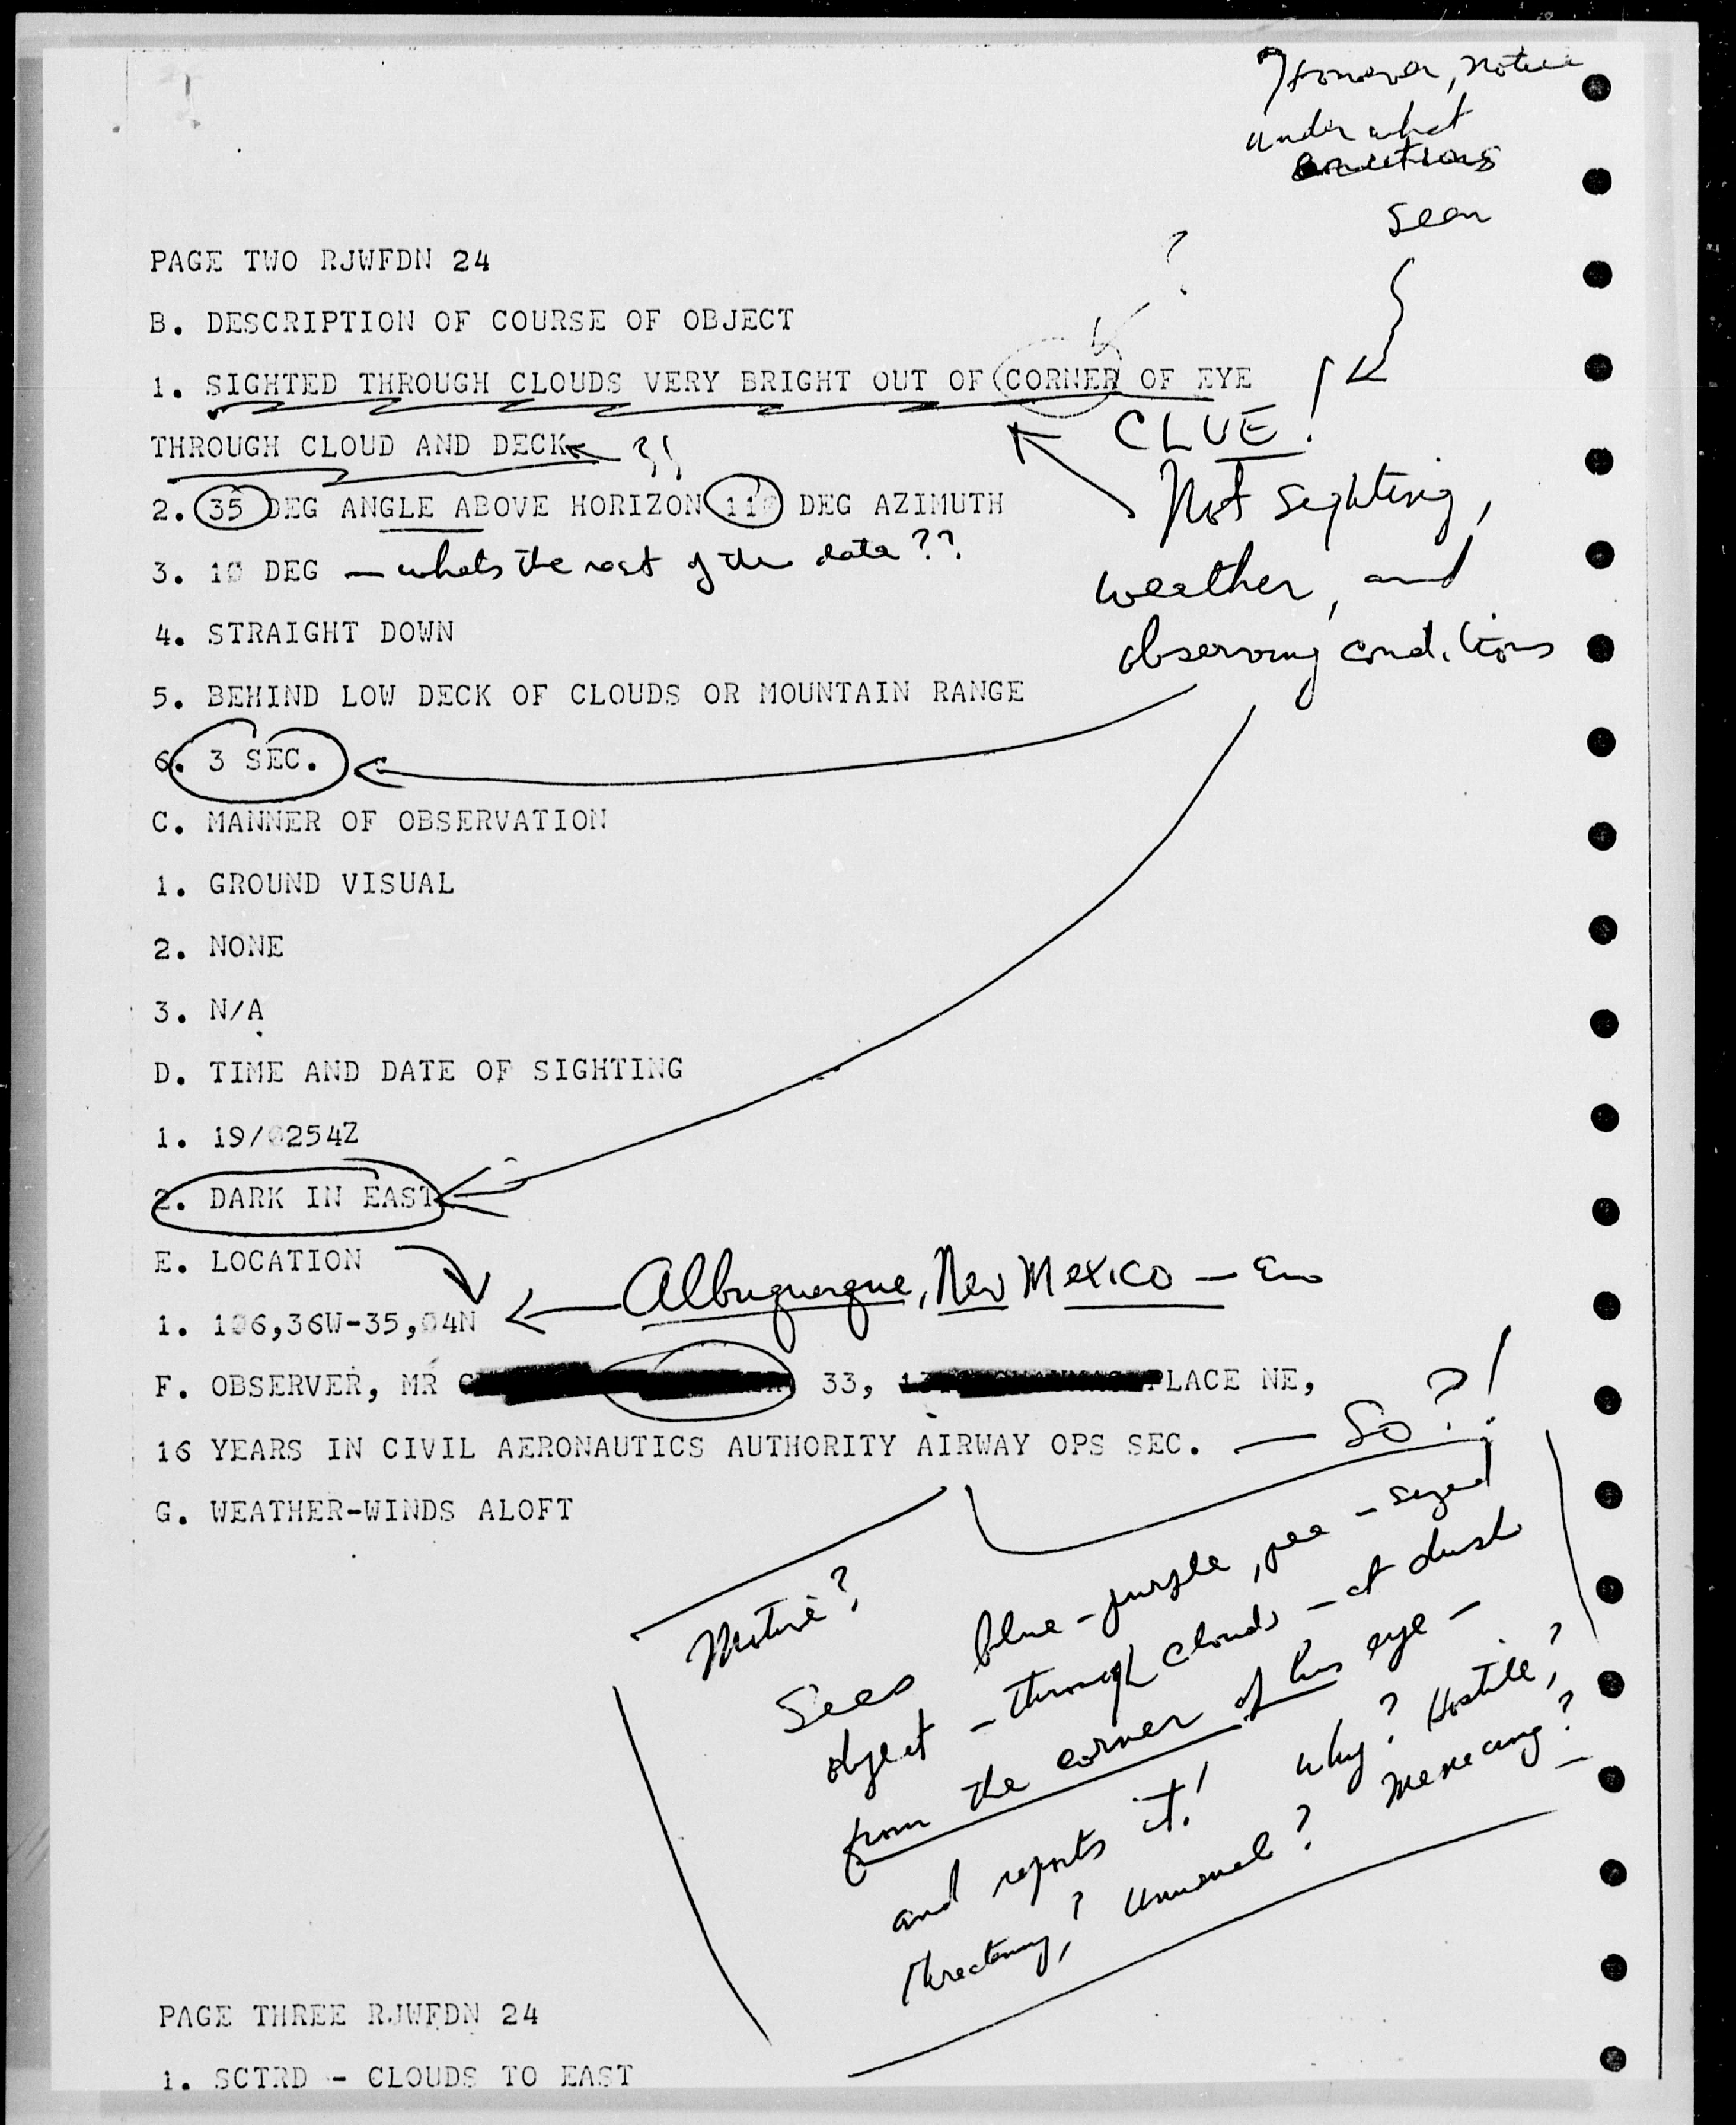 However, notice
under what
conditions
seen
?
PAGE TWO RJWFDN 24
B. DESCRIPTION OF COURSE OF OBJECT
1. SIGHTED THROUGH CLOUDS VERY BRIGHT OUT OF CORNER OF EYE
CLUE!
THROUGH CLOUD AND DECK
Not sighting,
2. 35 DEG ANGLE ABOVE HORIZON 110 DEG AZIMUTH
3. 10 DEG — whats the rest of the data??
weather, and
observing conditions
4. STRAIGHT DOWN
5. BEHIND LOW DECK OF CLOUDS OR MOUNTAIN RANGE
6. 3 SEC.
C. MANNER OF OBSERVATION
1. GROUND VISUAL
2. NONE
3. N/A
D. TIME AND DATE OF SIGHTING
1. 19/0254Z
2. DARK IN EAST
E. LOCATION
Albuquerque, New Mexico —
1. 106,36W-35,04N
F. OBSERVER, MR 33, PLACE NE,
16 YEARS IN CIVIL AERONAUTICS AUTHORITY AIRWAY OPS SEC. — So?!
G. WEATHER-WINDS ALOFT
Motive?
Sees blue-purple, pea-sized
object - through clouds - at dusk
from the corner of his eye -
and reports it! Why? Hostile?
Threatening? Unusual? Menacing?
PAGE THREE RJWFDN 24
1. SCTRD - CLOUDS TO EAST